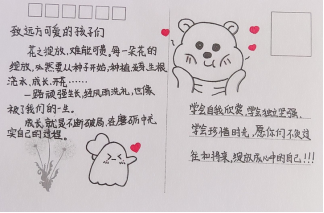 致远方可爱的孩子们
花之绽放，难能可贵。每一朵花的
绽放，必然要从种子开始，种植、生根
浇水、成长、开花……
一路顽强生长，经风雨洗礼，也像
被了我们的一生。
成长就是不断破局，在磨砺中充
实自己的过程。
学会自我欣赏，学会独立坚强，
学会珍惜时光，愿你们不负过
往和将来，绽放成心中的自己！！！